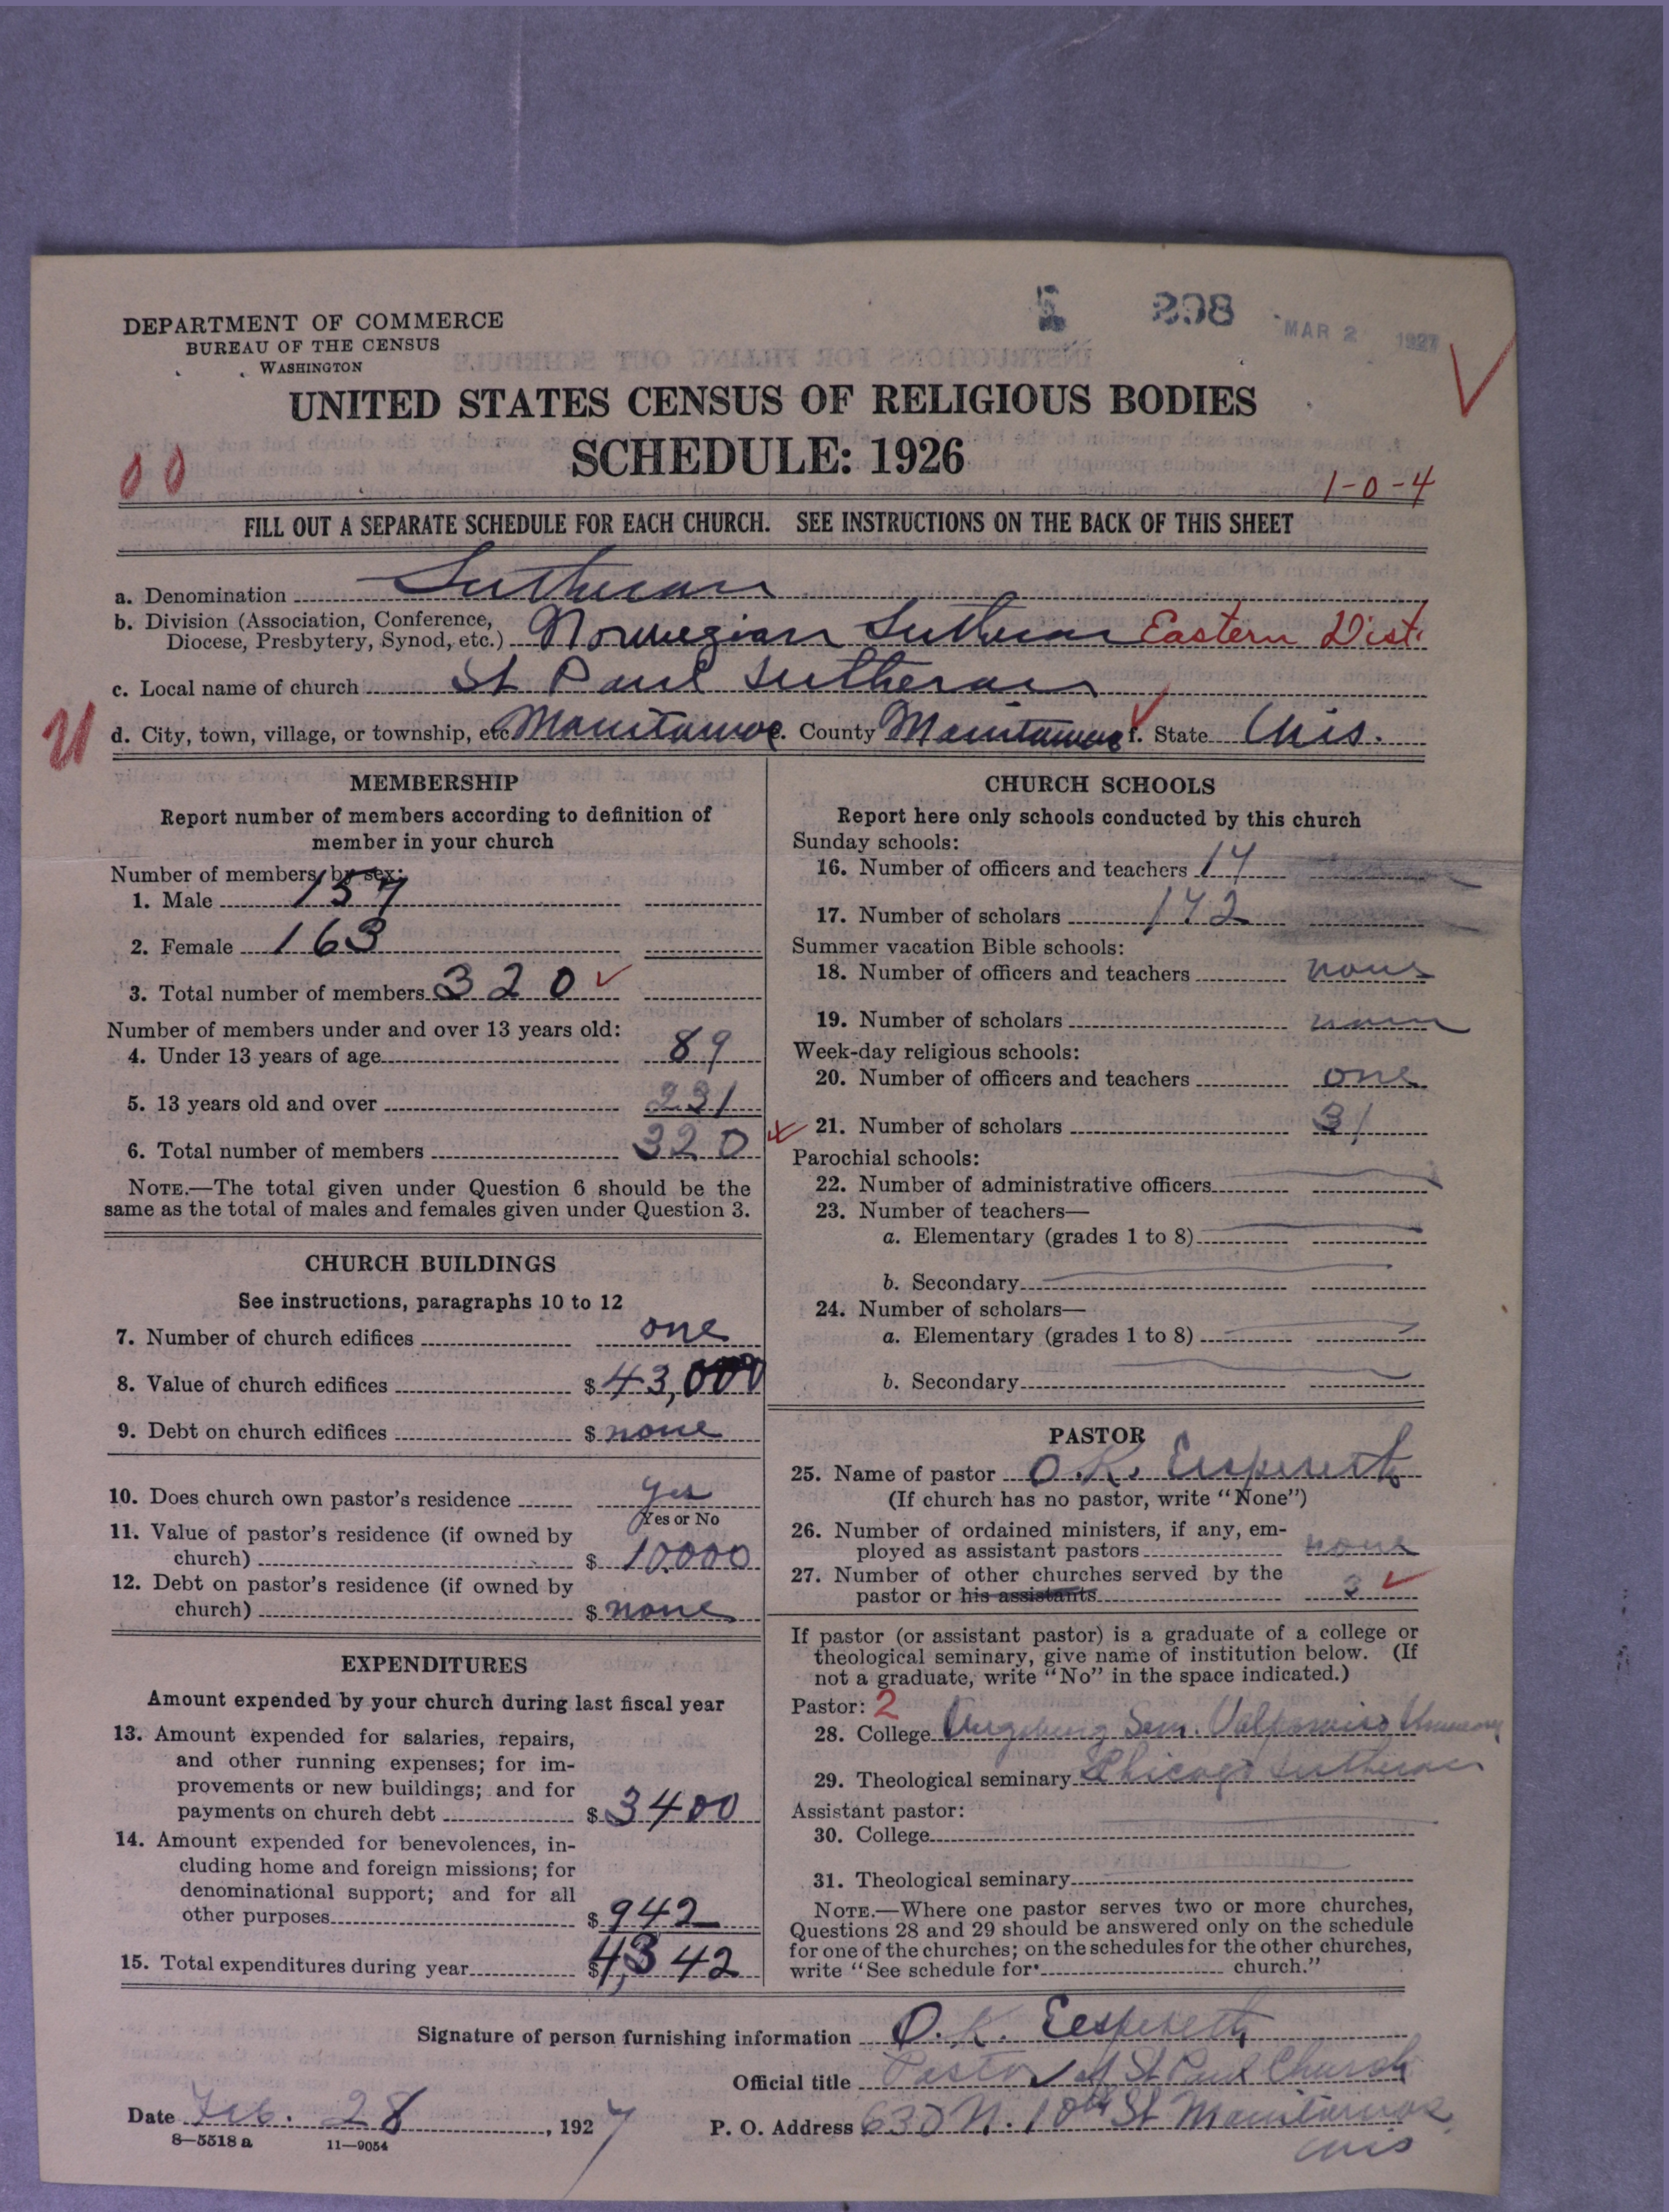 298
MAR 2 1927
DEPARTMENT OF COMMERCE
BUREAU OF THE CENSUS
WASHINGTON
UNITED STATES CENSUS OF RELIGIOUS BODIES
SCHEDULE: 1926
00
1-0-4
FILL OUT A SEPARATE SCHEDULE FOR EACH CHURCH. SEE INSTRUCTIONS ON THE BACK OF THIS SHEET
a. Denomination Lutheran
b. Division (Association, Conference,
Diocese, Presbytery, Synod, etc.) Norwegian Lutheran Eastern Dist.
c. Local name of church St Paul Lutheran
U
d. City, town, village, or township, etc. Manitowoc e. County Manitowoc f. State Wis.
MEMBERSHIP
Report number of members according to definition of
member in your church
Number of members by sex:
1. Male 157
2. Female 163
3. Total number of members 320
Number of members under and over 13 years old:
4. Under 13 years of age 89
5. 13 years old and over 231
6. Total number of members 320
NOTE.—The total given under Question 6 should be the
same as the total of males and females given under Question 3.
CHURCH BUILDINGS
See instructions, paragraphs 10 to 12
7. Number of church edifices one
8. Value of church edifices $ 43,000
9. Debt on church edifices $ none
10. Does church own pastor's residence yes
Yes or No
11. Value of pastor's residence (if owned by
church) $ 10000
12. Debt on pastor's residence (if owned by
church) $ none
EXPENDITURES
Amount expended by your church during last fiscal year
13. Amount expended for salaries, repairs,
and other running expenses; for im-
provements or new buildings; and for
payments on church debt $ 3400
14. Amount expended for benevolences, in-
cluding home and foreign missions; for
denominational support; and for all
other purposes $ 942
15. Total expenditures during year $ 4,342
CHURCH SCHOOLS
Report here only schools conducted by this church
Sunday schools:
16. Number of officers and teachers 17
17. Number of scholars 172
Summer vacation Bible schools:
18. Number of officers and teachers none
19. Number of scholars none
Week-day religious schools:
20. Number of officers and teachers one
21. Number of scholars 31
Parochial schools:
22. Number of administrative officers
23. Number of teachers—
a. Elementary (grades 1 to 8)
b. Secondary
24. Number of scholars—
a. Elementary (grades 1 to 8)
b. Secondary
PASTOR
25. Name of pastor O. K. Espeseth
(If church has no pastor, write "None")
26. Number of ordained ministers, if any, em-
ployed as assistant pastors none
27. Number of other churches served by the
pastor or his assistants 2
If pastor (or assistant pastor) is a graduate of a college or
theological seminary, give name of institution below. (If
not a graduate, write "No" in the space indicated.)
Pastor: 2
28. College Augsburg Sem. Valparaiso
29. Theological seminary Chicago Lutheran
Assistant pastor:
30. College
31. Theological seminary
NOTE.—Where one pastor serves two or more churches,
Questions 28 and 29 should be answered only on the schedule
for one of the churches; on the schedules for the other churches,
write "See schedule for church."
Signature of person furnishing information O. K. Espeseth
Official title Pastor of St Paul Church
Date Feb. 28, 1927 P. O. Address 630 N. 10th St Manitowoc
Wis
8—5518 a 11—9054